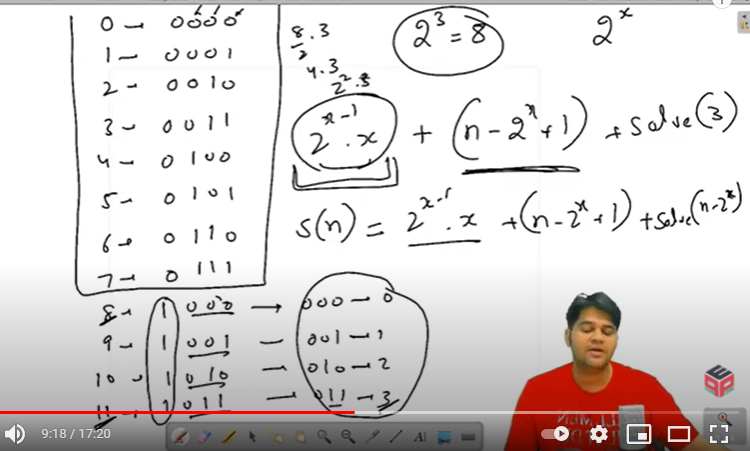 0 → 0000
1 — 0001
2 — 0010
3 → 0011
4 → 0100
5 → 0101
6 → 0110
7 → 0111
8 → 1 000 → 000 → 0
9 → 1 001 — 001 → 1
10 → 1 010 → 010 → 2
11 → 1 011 → 011 → 3
8/2 . 3
4 . 3
2² . 3
2³ = 8
2ˣ
2ˣ⁻¹ . x + (n - 2ˣ + 1) + solve(3)
S(n) = 2ˣ⁻¹ . x + (n - 2ˣ + 1) + solve(n - 2ˣ)
9:18 / 17:20